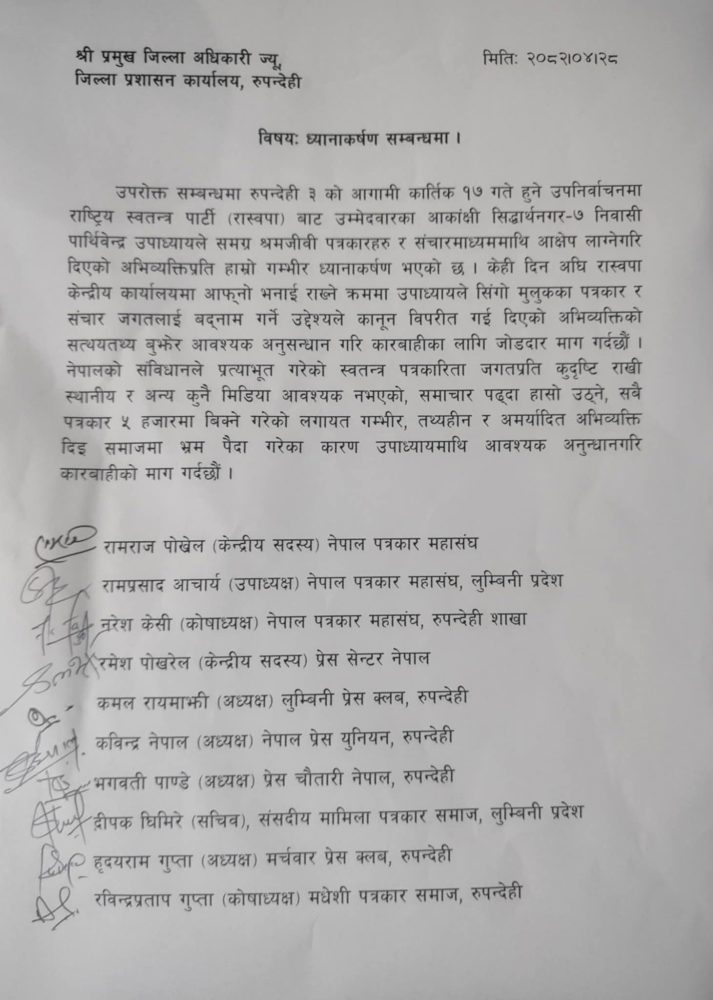 श्री प्रमुख जिल्ला अधिकारी ज्यू,
मितिः २०८२।०४।२८
जिल्ला प्रशासन कार्यालय, रुपन्देही
विषयः ध्यानाकर्षण सम्बन्धमा ।
उपरोक्त सम्बन्धमा रुपन्देही ३ को आगामी कार्तिक १७ गते हुने उपनिर्वाचनमा
राष्ट्रिय स्वतन्त्र पार्टी (रास्वपा) बाट उम्मेदवारका आकांक्षी सिद्धार्थनगर-७ निवासी
पार्थिवेन्द्र उपाध्यायले समग्र श्रमजीवी पत्रकारहरु र संचारमाध्यममाथि आक्षेप लाग्नेगरि
दिएको अभिव्यक्तिप्रति हाम्रो गम्भीर ध्यानाकर्षण भएको छ । केही दिन अघि रास्वपा
केन्द्रीय कार्यालयमा आफ्नो भनाई राख्ने क्रममा उपाध्यायले सिंगो मुलुकका पत्रकार र
संचार जगतलाई बद्नाम गर्ने उद्देश्यले कानून विपरीत गई दिएको अभिव्यक्तिको
सत्थयतथ्य बुझेर आवश्यक अनुसन्धान गरि कारबाहीका लागि जोडदार माग गर्दछौं ।
नेपालको संविधानले प्रत्याभूत गरेको स्वतन्त्र पत्रकारिता जगतप्रति कुदृष्टि राखी
स्थानीय र अन्य कुनै मिडिया आवश्यक नभएको, समाचार पढ्दा हासो उठ्ने, सबै
पत्रकार ५ हजारमा बिक्ने गरेको लगायत गम्भीर, तथ्यहीन र अमर्यादित अभिव्यक्ति
दिइ समाजमा भ्रम पैदा गरेका कारण उपाध्यायमाथि आवश्यक अनुन्धानगरि
कारबाहीको माग गर्दछौं ।
रामराज पोखेल (केन्द्रीय सदस्य) नेपाल पत्रकार महासंघ
रामप्रसाद आचार्य (उपाध्यक्ष) नेपाल पत्रकार महासंघ, लुम्बिनी प्रदेश
नरेश केसी (कोषाध्यक्ष) नेपाल पत्रकार महासंघ, रुपन्देही शाखा
रमेश पोखरेल (केन्द्रीय सदस्य) प्रेस सेन्टर नेपाल
कमल रायमाझी (अध्यक्ष) लुम्बिनी प्रेस क्लब, रुपन्देही
कविन्द्र नेपाल (अध्यक्ष) नेपाल प्रेस युनियन, रुपन्देही
भगवती पाण्डे (अध्यक्ष) प्रेस चौतारी नेपाल, रुपन्देही
दीपक घिमिरे (सचिव), संसदीय मामिला पत्रकार समाज, लुम्बिनी प्रदेश
हृदयराम गुप्ता (अध्यक्ष) मर्चवार प्रेस क्लब, रुपन्देही
रविन्द्रप्रताप गुप्ता (कोषाध्यक्ष) मधेशी पत्रकार समाज, रुपन्देही